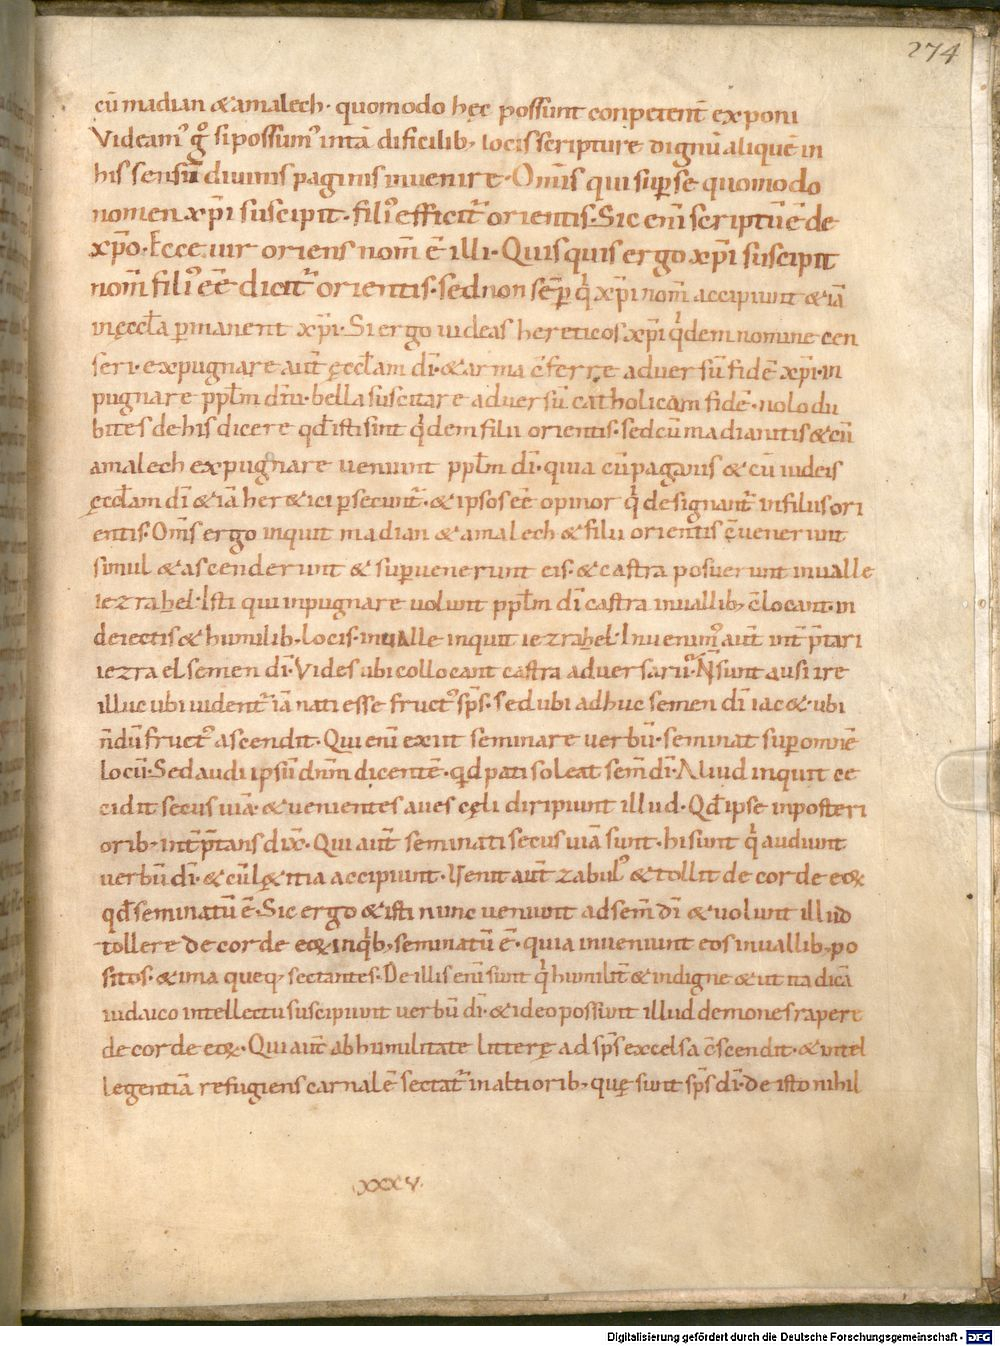 274
cū madian & amalech· quomodo hęc possunt conpetent̄ exponi
Videam᾽ gͦ si possum᾽ in tā dificilib; locis scripture dignū aliquē in
his sensū diuinis paginis inuenire· Om̄is qui sup̄ se quomodo
nomen xp̄i suscipit· fili᾽ efficit᷒ orientis· Sic eni scriptū ē de
xp̄o· Ecce uir oriens nom̄ ē illi· Quisquis ergo xp̄i suscipit
nom̄ fili᾽ eē dicit᷒ orientis· sed non sēp qͥ xp̄i nom̄ accipiunt & iā
in ęccl̄a p̄manent xp̄i· Si ergo uideas hereticos xp̄i qͥdem nomine cen
seri· expugnare aut̄ ęccl̄am dī· & arma c̄ferre aduersū fidē xp̄i· in
pugnare pp̄lm dn̄i· bella suscitare aduersū catholicam fidē· nolo du
bites de his dicere qd̄ isti sint qͥdem filii orientis· sed cū madianitis & cū
amalech expugnare ueniunt pp̄lm dī· quia cū paganis & cū iudeis
ęccl̄am dī & iā her&ici p̄secunt᷒· & ipsos eē opinor qͥ designant᷒ in filiis ori
entis· Om̄s ergo inquit madian & amalech & filii orientis c̄uenerunt
simul & ascenderunt & sup̄uenerunt eis· & castra posuerunt in ualle
iezrahel· Isti qui inpugnare uolunt pp̄lm dī castra in uallib; c̄locant· in
deiectis & humilib· locis· in ualle inquit iezrahel· Inuenim᾽ aut̄ int̄p̄tari
iezrael semen dī· Vides ubi collocant castra aduersariū· N̄ sunt ausi ire
illuc ubi uident᷒ iā nati esse fruct᾽ sp̄s· sed ubi adhuc semen dī iac&· ubi
n̄dū fruct᾽ ascendit· Qui eni exiit seminare uerbū· seminat sup̄ omnē
locū· Sed audi ipsū dn̄m dicentē· qͥd pati soleat sem̄ dī· Aliud inquit ce
cidit secus uiā· & uenientes aues cęli diripiunt illud· Qd̄ ipse in posteri
orib; int̄p̄tans dix̄· Qui aut̄ seminati secus uiā sunt· hi sunt qͥ audiunt
uerbū dī· & cū lętitia accipiunt· Uenit aut̄ zabul᾽ & tollit de corde eoꝝ
qd̄ seminatū ē· Sic ergo & isti nunc ueniunt ad sem̄ dī & uolunt illud
tollere de corde eoꝝ in qͥb; seminatū ē· quia inueniunt eos in uallib; po
sitos· & ima queq; sectantes· De illis eni sunt qͥ humilit̄ & indigne & ut ita dicā
iudaico intellectu suscipiunt uerbū dī· & ideo possunt illud demones rapere
de corde eoꝝ· Qui aut̄ ab humilitate litterę ad sp̄s excelsa c̄scendit· & intel
legentiā refugiens carnalē sectat᷒ in altiorib; quę sunt sp̄s dī· de isto nihil
XXXV·
Digitalisierung gefördert durch die Deutsche Forschungsgemeinschaft · DFG